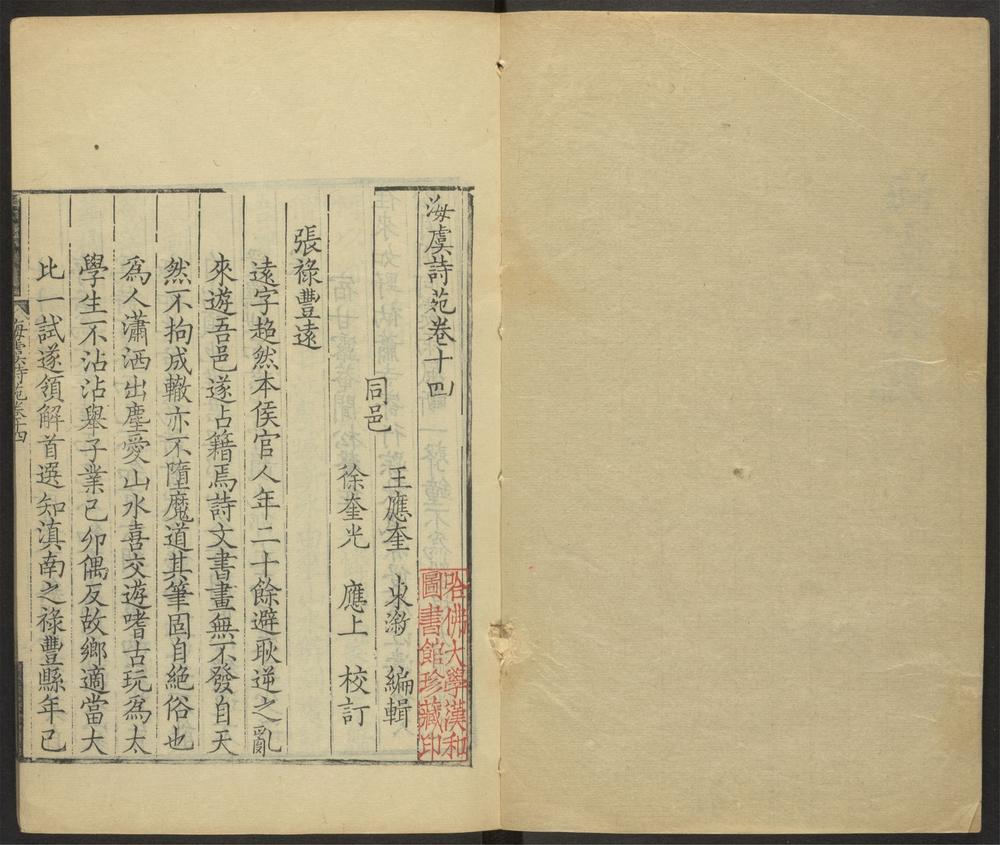 海虞詩苑卷十四
王應奎 東漵 編輯
同邑
徐奎光 應上 校訂
張祿豐遠
遠字超然本侯官人年二十餘避耿逆之亂
來遊吾邑遂占籍焉詩文書畫無不發自天
然不拘成轍亦不墮魔道其筆固自絶俗也
爲人瀟洒出塵愛山水喜交遊嗜古玩爲太
學生不沾沾舉子業己夘偶反故鄉適當大
比一試遂領解首選知滇南之祿豐縣年已
海虞詩苑卷十四
哈佛大學漢和
圖書館珍藏印